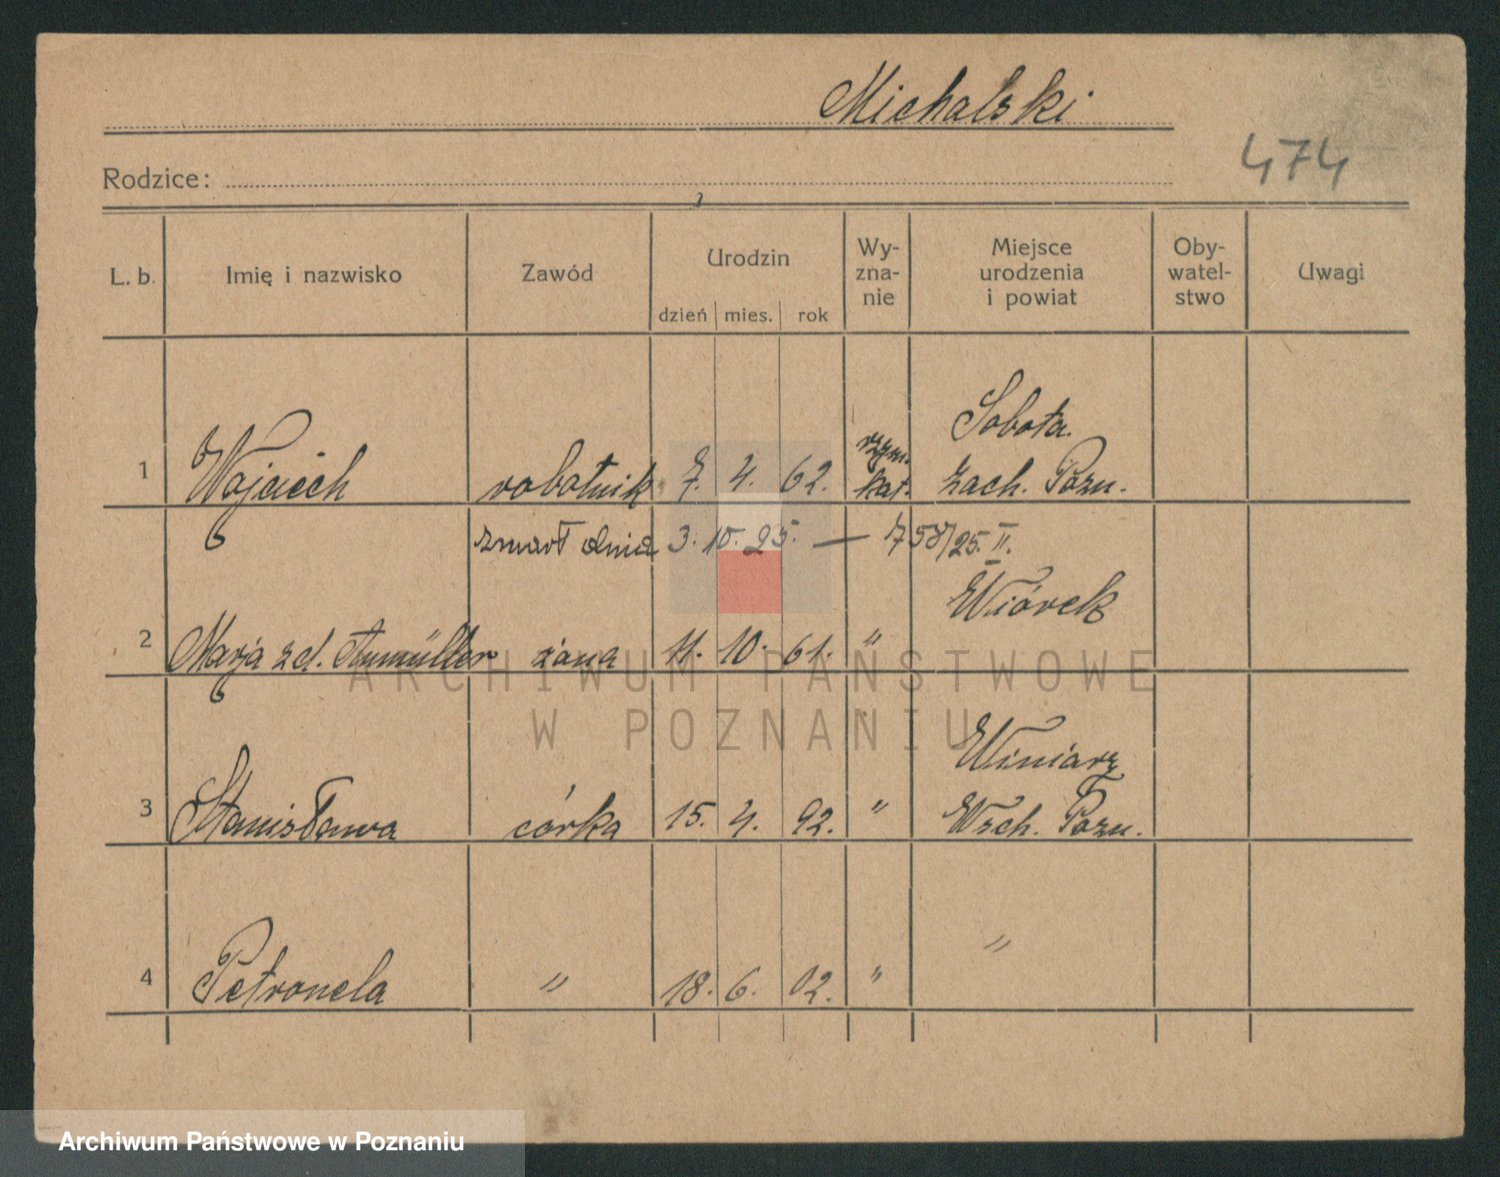 Michalski
474
Rodzice:
L. b. Imię i nazwisko Zawód Urodzin dzień mies. rok Wy-zna-nie Miejsce urodzenia i powiat Oby-watel-stwo Uwagi
Sobota
1 Wojciech robotnik 7. 4. 62. rzym. kat. zach. Pozn.
zmarł dnia 3. 10. 25. — 758/25. II.
Wiórek
2 Marja zd. Aumüller żona 11. 10. 61. "
Winiary
3 Stanisława córka 15. 4. 92. " Wsch. Pozn.
4 Petronela " 18. 6. 02. " "
ARCHIWUM PAŃSTWOWE
W POZNANIU
Archiwum Państwowe w Poznaniu